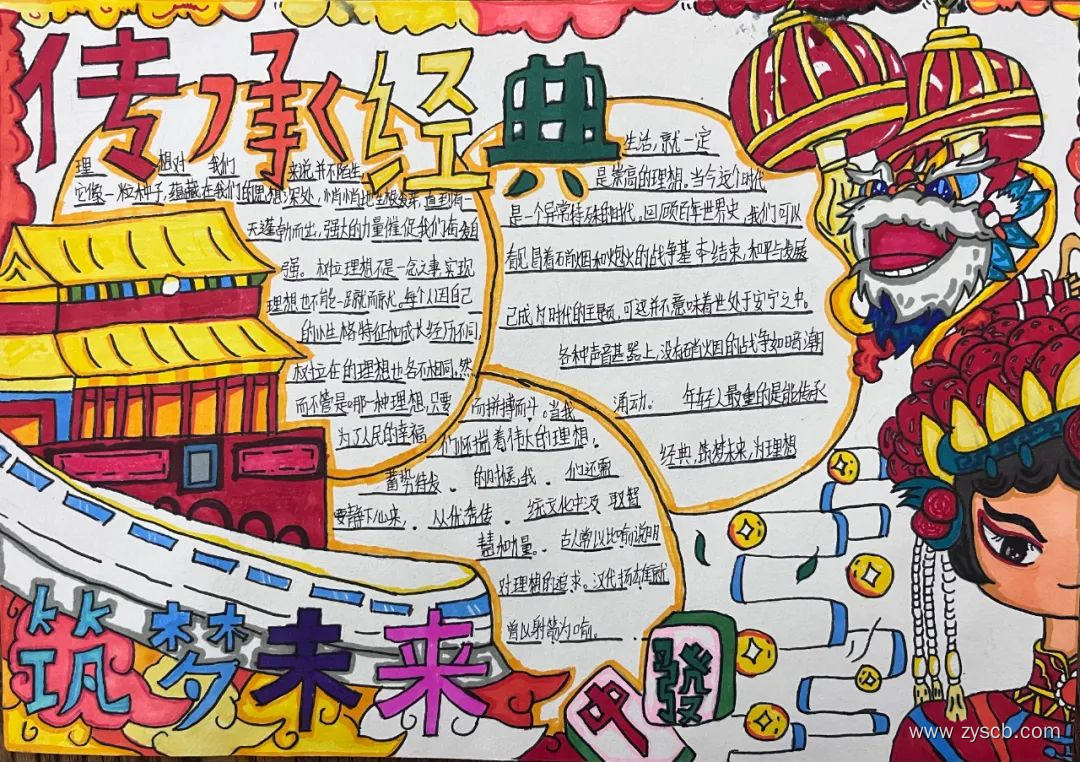 传承经典
理想对我们来说并不陌生,
它像一粒种子,蕴藏在我们的思想深处,悄悄地生根发芽,直到有一
天蓬勃而出,强大的力量催促我们奋发自
强。树立理想不是一念之事,实现
理想也不能一蹴而就。每个人因自己
的个性格特征和成长经历不同,
树立在的理想也各不相同,然
而不管是哪一种理想,只要
为了人民的幸福
而拼搏而斗。当我
们怀揣着伟大的理想。
蓄势待发、的时候,我、们还需
要静下心来,从优秀传、统文化中汲取智
慧和力量。古人常以比喻说明
对理想的追求。汉代扬雄就
曾以射箭为喻。
生活,就一定
是崇高的理想。当今这个时代
是一个异常特殊的时代。回顾百年世界史,我们可以
看见冒着硝烟和炮火的战争基本结束,和平与发展
已成为时代的主题,可这并不意味着世处于安宁之中。
各种声音甚嚣尘上,没有硝烟的战争如暗潮
涌动。年轻人最重的是能传承
经典,筑梦未来,为理想
筑梦未来
中
發
www.zyscb.com